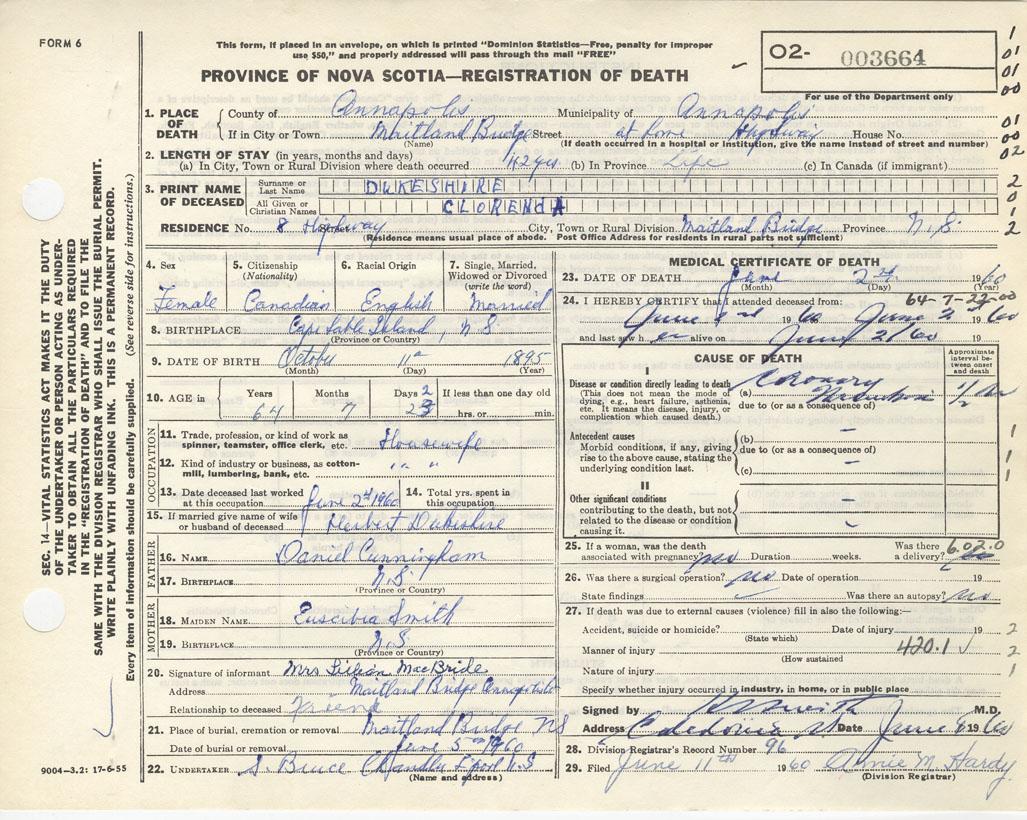 FORM 6
This form, if placed in an envelope, on which is printed "Dominion Statistics—Free, penalty for improper
use $50," and properly addressed will pass through the mail "FREE"
PROVINCE OF NOVA SCOTIA—REGISTRATION OF DEATH
O2- 003664
For use of the Department only
1. PLACE OF DEATH
County of Annapolis Municipality of Annapolis
If in City or Town Maitland Bridge Street at home Highway House No.
(Name) (If death occurred in a hospital or institution, give the name instead of street and number)
2. LENGTH OF STAY (in years, months and days)
(a) In City, Town or Rural Division where death occurred 42 yrs (b) In Province Life (c) In Canada (if immigrant)
3. PRINT NAME OF DECEASED
Surname or Last Name DUKESHIRE
All Given or Christian Names CLORENDA
RESIDENCE No. 8 Highway Street City, Town or Rural Division Maitland Bridge Province N.S.
(Residence means usual place of abode. Post Office Address for residents in rural parts not sufficient)
4. Sex Female
5. Citizenship (Nationality) Canadian
6. Racial Origin English
7. Single, Married, Widowed or Divorced (write the word) Married
8. BIRTHPLACE Cape Sable Island, N.S.
(Province or Country)
9. DATE OF BIRTH October 11th 1895
(Month) (Day) (Year)
10. AGE in Years 64 Months 7 Days 22 If less than one day hrs. or min.
OCCUPATION
11. Trade, profession, or kind of work as spinner, teamster, office clerk, etc. Housewife
12. Kind of industry or business, as cotton-mill, lumbering, bank, etc. " "
13. Date deceased last worked at this occupation June 2nd 1960
14. Total yrs. spent in this occupation
15. If married give name of wife or husband of deceased Herbert Dukeshire
FATHER
16. NAME Daniel Cunningham
17. BIRTHPLACE N.S.
(Province or Country)
MOTHER
18. MAIDEN NAME Smith
19. BIRTHPLACE N.S.
(Province or Country)
20. Signature of informant Mrs Lillian MacBride
Address Maitland Bridge Annapolis Co
Relationship to deceased Friend
21. Place of burial, cremation or removal Maitland Bridge NS
Date of burial or removal June 5th 1960
22. UNDERTAKER S. Bruce Chandler L'pool N.S
(Name and address)
MEDICAL CERTIFICATE OF DEATH
23. DATE OF DEATH June 2nd 1960
(Month) (Day)
64-7-22-00
24. I HEREBY CERTIFY that I attended deceased from:
June 2nd 1960 June 2nd 1960
and last saw her alive on June 2/60 19
CAUSE OF DEATH
Approximate interval between onset and death
I
Disease or condition directly leading to death (a) Coronary
(This does not mean the mode of dying, e.g., heart failure, asthenia, etc. It means the disease, injury, or complication which caused death.)
due to (or as a consequence of)
1/2 hr
Antecedent causes (b) –
Morbid conditions, if any, giving rise to the above cause, stating the underlying condition last.
due to (or as a consequence of)
(c) –
II
Other significant conditions
contributing to the death, but not related to the disease or condition causing it.
25. If a woman, was the death associated with pregnancy? no Duration weeks. Was there a delivery?
6.02.0
26. Was there a surgical operation? no Date of operation 19
State findings Was there an autopsy? no
27. If death was due to external causes (violence) fill in also the following:—
Accident, suicide or homicide? Date of injury 19
(State which)
Manner of injury 420.1
(How sustained
Nature of injury
Specify whether injury occurred in industry, in home, or in public place
Signed by M.D.
Address Caledonia Date June 1960
28. Division Registrar's Record Number 96
29. Filed June 11th 1960 Annie M. Hardy
(Division Registrar)
SEC. 14—VITAL STATISTICS ACT MAKES IT THE DUTY
OF THE UNDERTAKER OR PERSON ACTING AS UNDER-
TAKER TO OBTAIN ALL THE PARTICULARS REQUIRED
IN THE "REGISTRATION OF DEATH" AND FILE THE
SAME WITH THE DIVISION REGISTRAR WHO SHALL ISSUE THE BURIAL PERMIT.
WRITE PLAINLY WITH UNFADING INK. THIS IS A PERMANENT RECORD.
Every item of information should be carefully supplied. (See reverse side for instructions.)
9004—3.2: 17-6-55
1
01
01
00
01
00
02
2
0
1
2
1
1
1
2
2
1